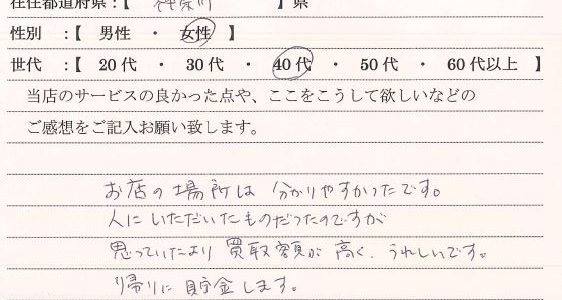 在住都道府県：【 神奈川 】県
性別 ：【 男性 ・ 女性 】
世代 ：【 20代 ・ 30代 ・ 40代 ・ 50代 ・ 60代以上 】
当店のサービスの良かった点や、ここをこうして欲しいなどの
ご感想をご記入お願い致します。
お店の場所は 分かりやすかったです。
人にいただいたものだったのですが
思っていたより 買取額が 高く、うれしいです。
帰りに 貯金します。